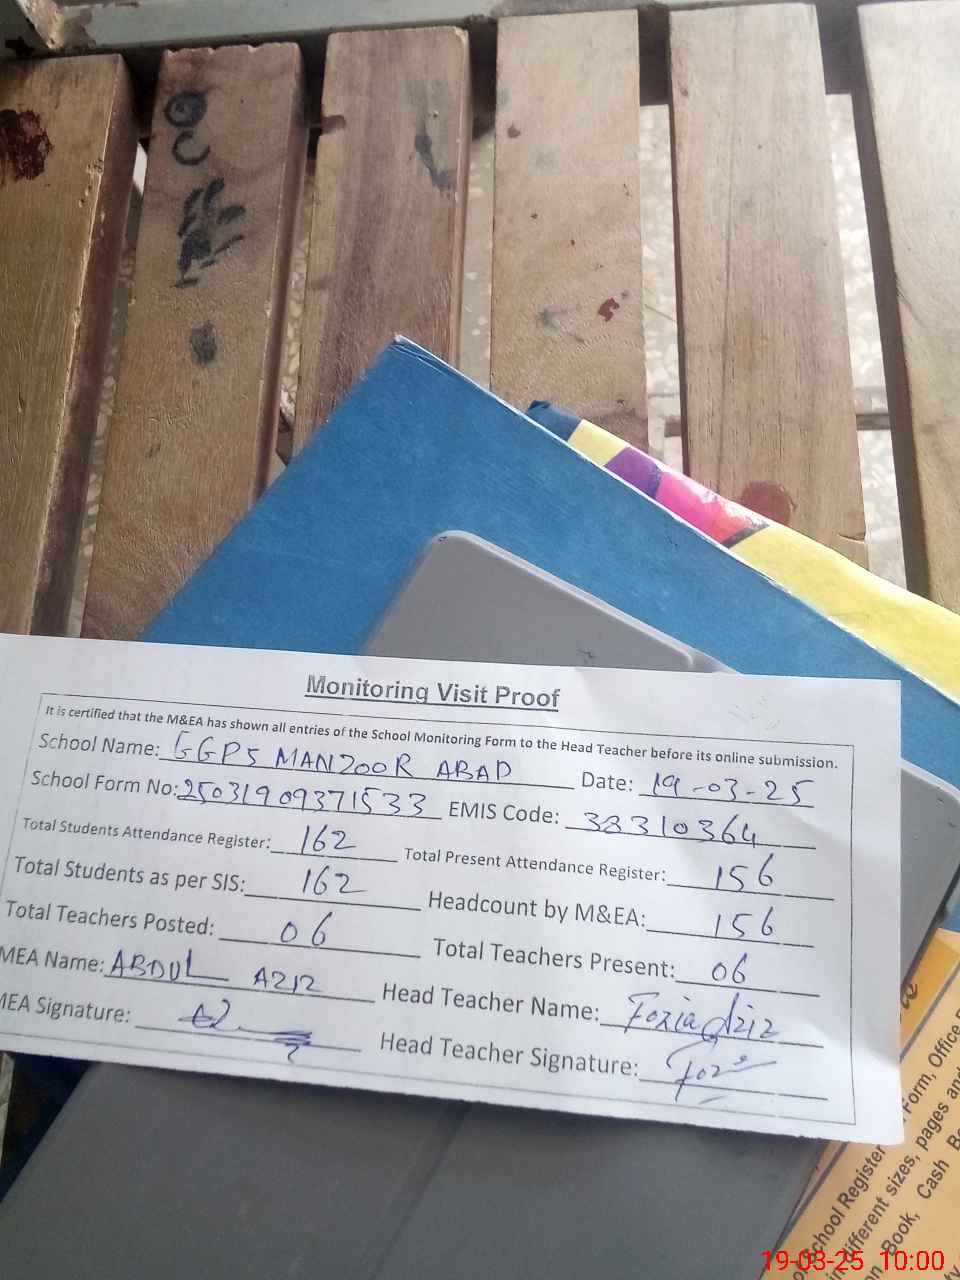 Monitoring Visit Proof
It is certified that the M&EA has shown all entries of the School Monitoring Form to the Head Teacher before its online submission.
School Name: GGPS MANZOOR ABAD Date: 19-03-25
School Form No: 25031909371533 EMIS Code: 38310364
Total Students Attendance Register: 162 Total Present Attendance Register: 156
Total Students as per SIS: 162 Headcount by M&EA: 156
Total Teachers Posted: 06 Total Teachers Present: 06
MEA Name: ABDUL AZIZ Head Teacher Name: Fozia Aziz
MEA Signature: Head Teacher Signature: Foz
School Register
Form, Office
different sizes, pages and
Book, Cash
19-03-25 10:00